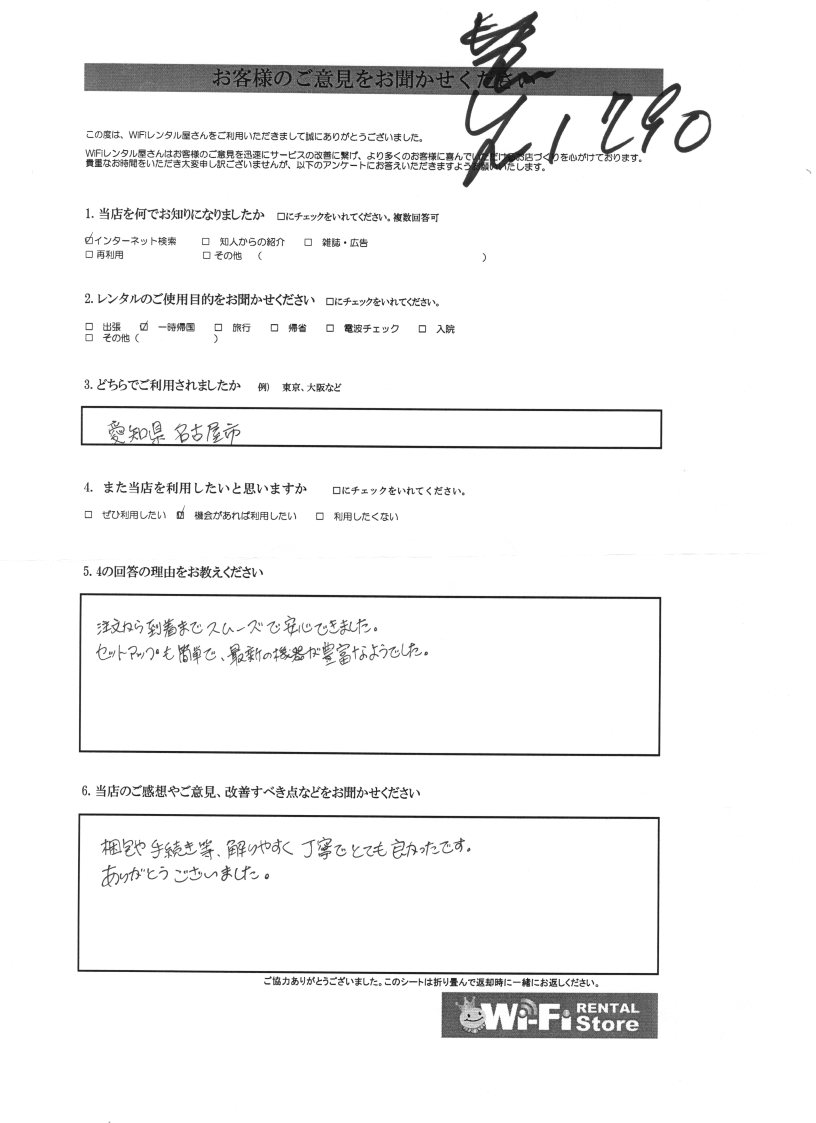 お客様のご意見をお聞かせください
1790
この度は、WiFiレンタル屋さんをご利用いただきまして誠にありがとうございました。
WiFiレンタル屋さんはお客様のご意見を迅速にサービスの改善に繋げ、より多くのお客様に喜んでいただけるお店づくりを心がけております。
貴重なお時間をいただき大変申し訳ございませんが、以下のアンケートにお答えいただきますようお願いいたします。
1. 当店を何でお知りになりましたか □にチェックをいれてください。複数回答可
☑インターネット検索 □ 知人からの紹介 □ 雑誌・広告
□ 再利用 □ その他 ( )
2. レンタルのご使用目的をお聞かせください □にチェックをいれてください。
□ 出張 ☑ 一時帰国 □ 旅行 □ 帰省 □ 電波チェック □ 入院
□ その他 ( )
3. どちらでご利用されましたか 例) 東京、大阪など
愛知県 名古屋市
4. また当店を利用したいと思いますか □にチェックをいれてください。
□ ぜひ利用したい ☑ 機会があれば利用したい □ 利用したくない
5. 4の回答の理由をお教えください
注文から到着までスムーズで安心できました。
セットアップも簡単で、最新の機器が豊富なようでした。
6. 当店のご感想やご意見、改善すべき点などをお聞かせください
梱包や手続き等、解りやすく丁寧でとても良かったです。
ありがとうございました。
ご協力ありがとうございました。このシートは折り畳んで返却時に一緒にお返しください。
Wi-Fi RENTAL Store